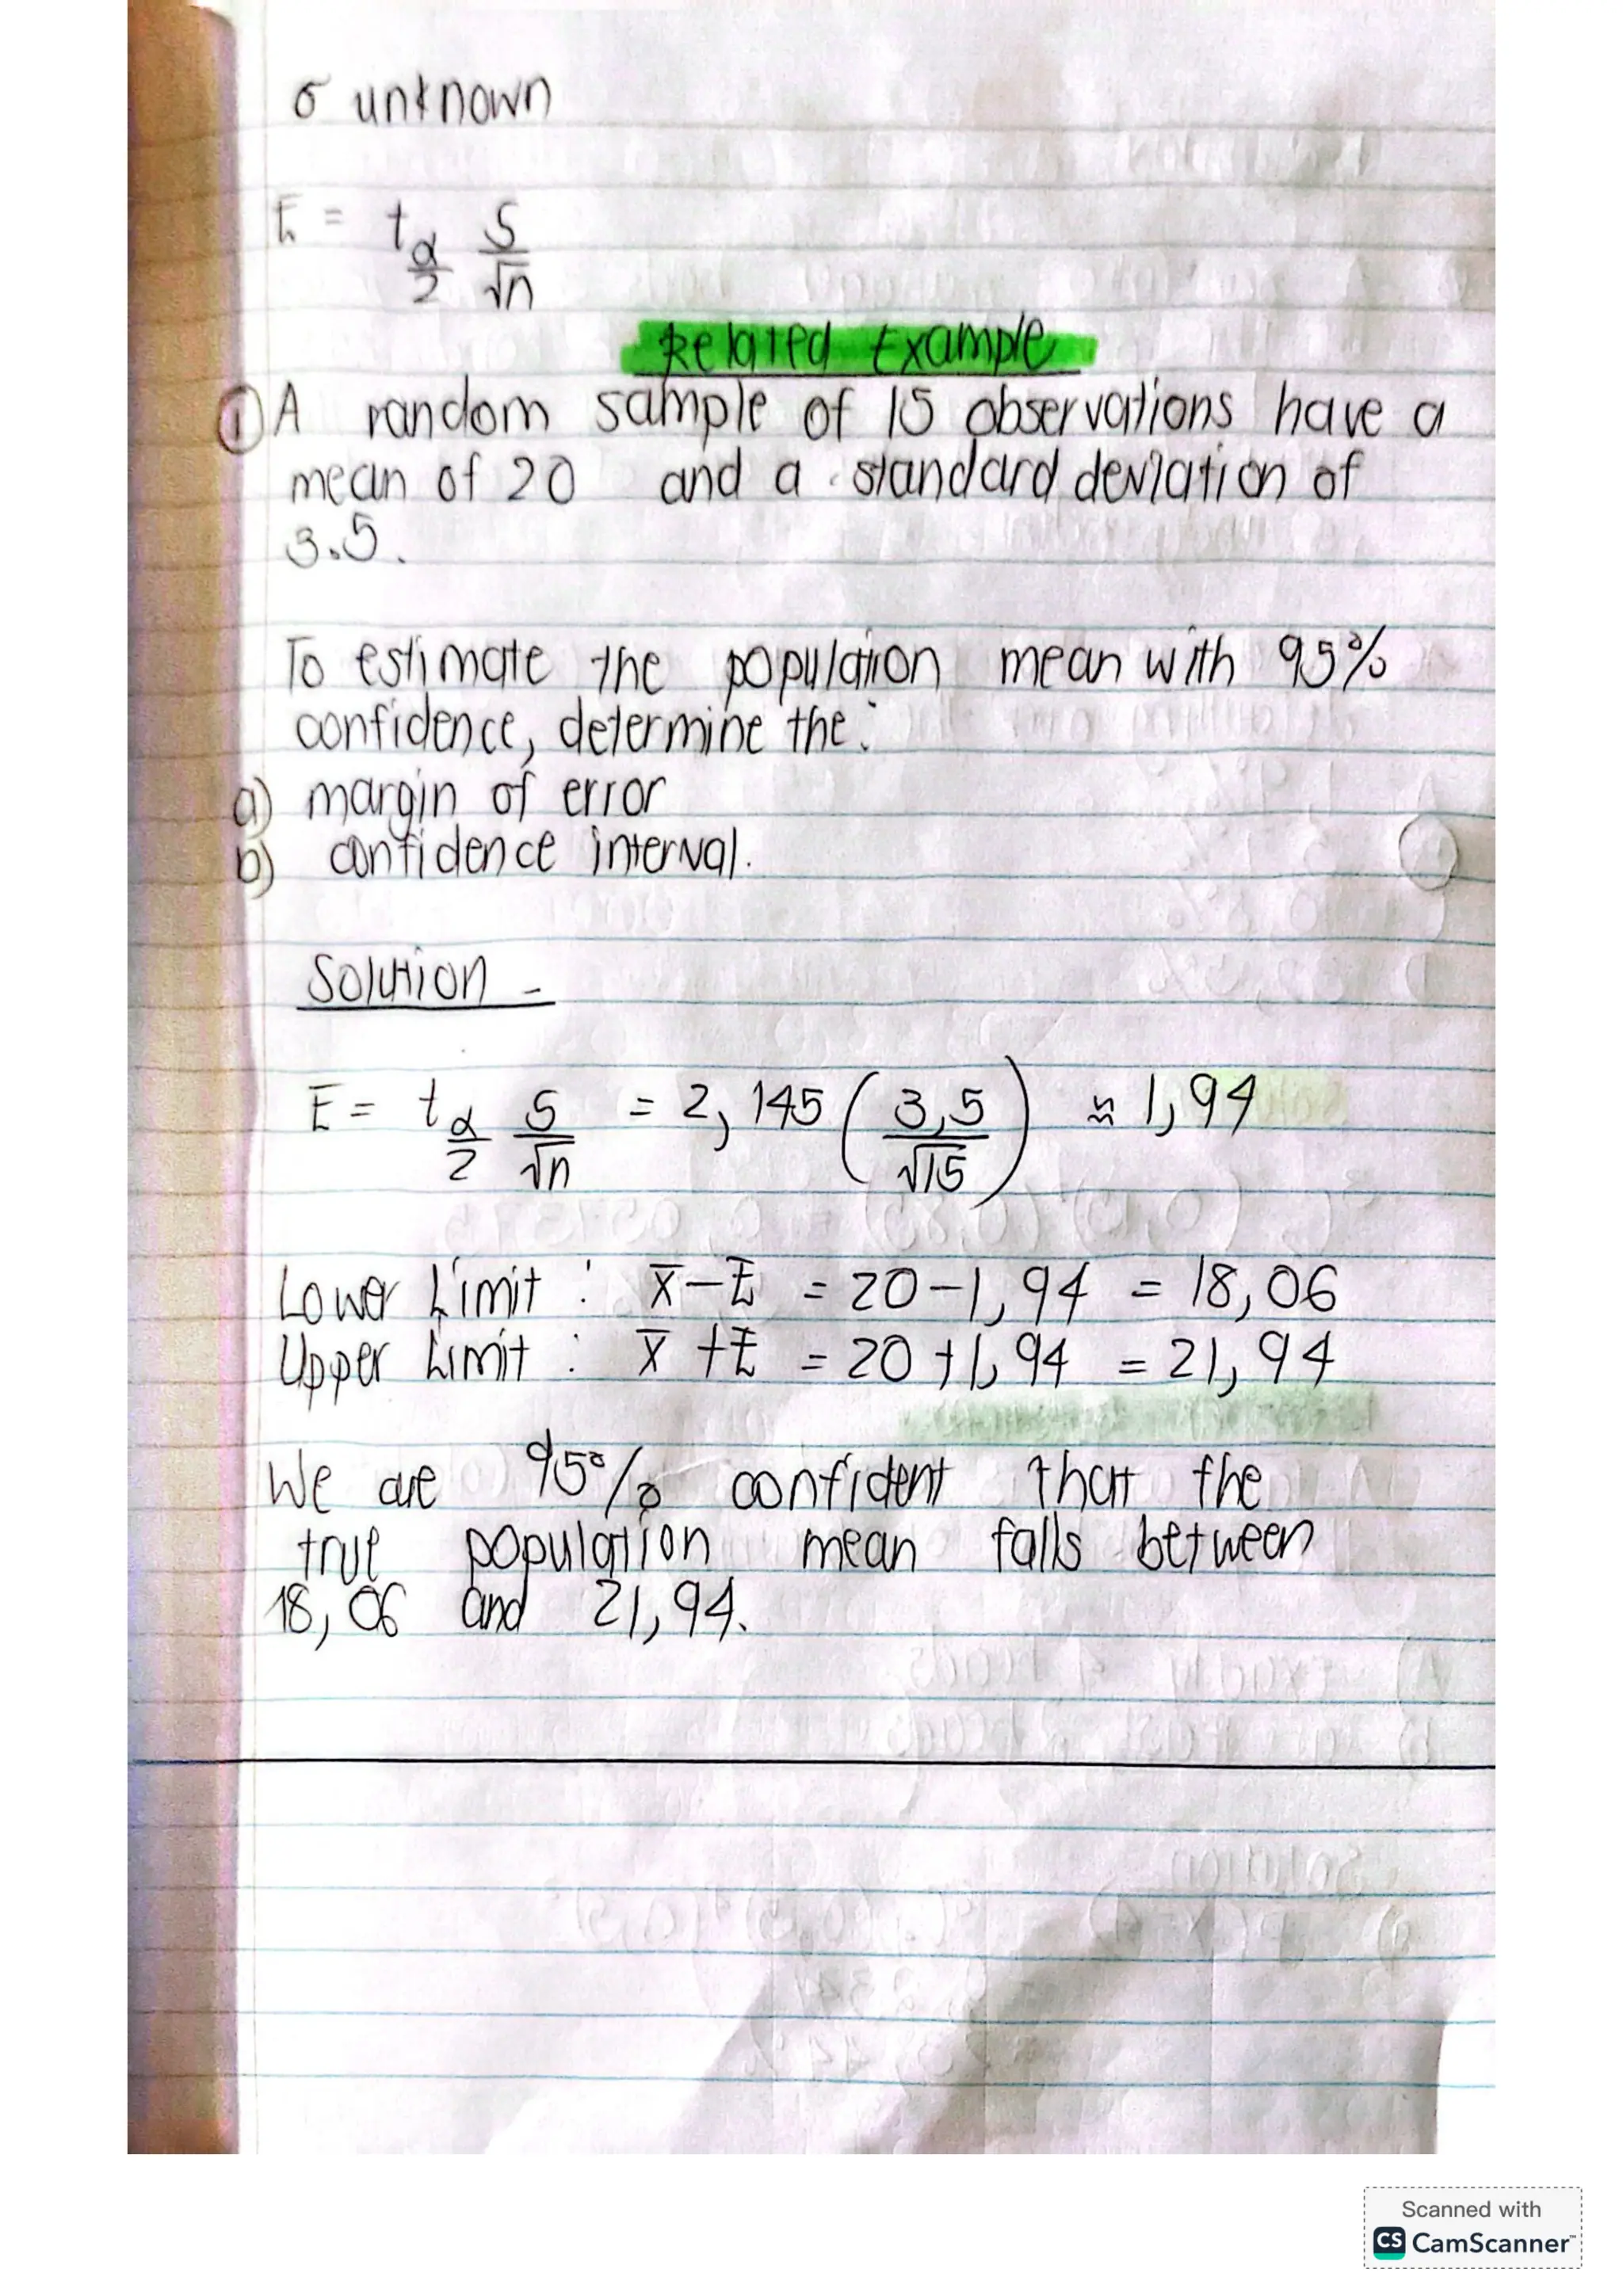 σ unknown
E = t α/2 S/√n
Related Example
① A random sample of 15 observations have a
mean of 20 and a standard deviation of
3.5.
To estimate the population mean with 95%
confidence, determine the:
a) margin of error
b) confidence interval.
Solution -
E = t α/2 S/√n = 2,145 (3,5/√15) ≈ 1,94
Lower Limit : x̅ - E = 20 - 1,94 = 18,06
Upper Limit : x̅ + E = 20 + 1,94 = 21,94
We are 95% confident that the
true population mean falls between
18,06 and 21,94.
Scanned with
CS CamScanner™